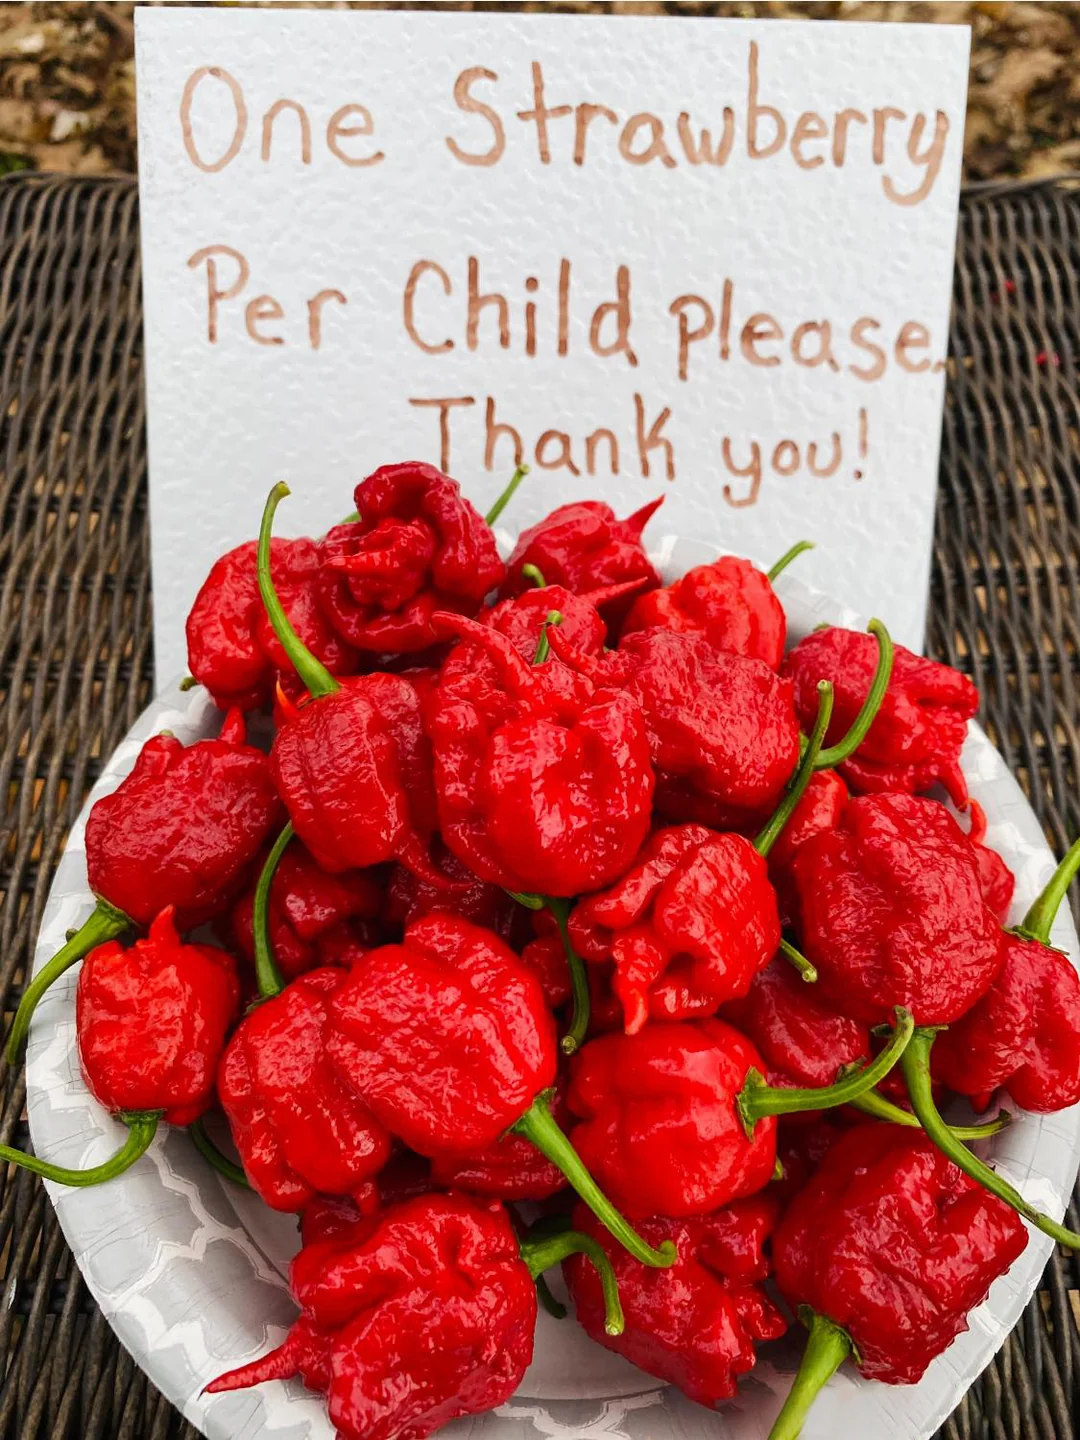 One Strawberry
Per Child please.
Thank you!